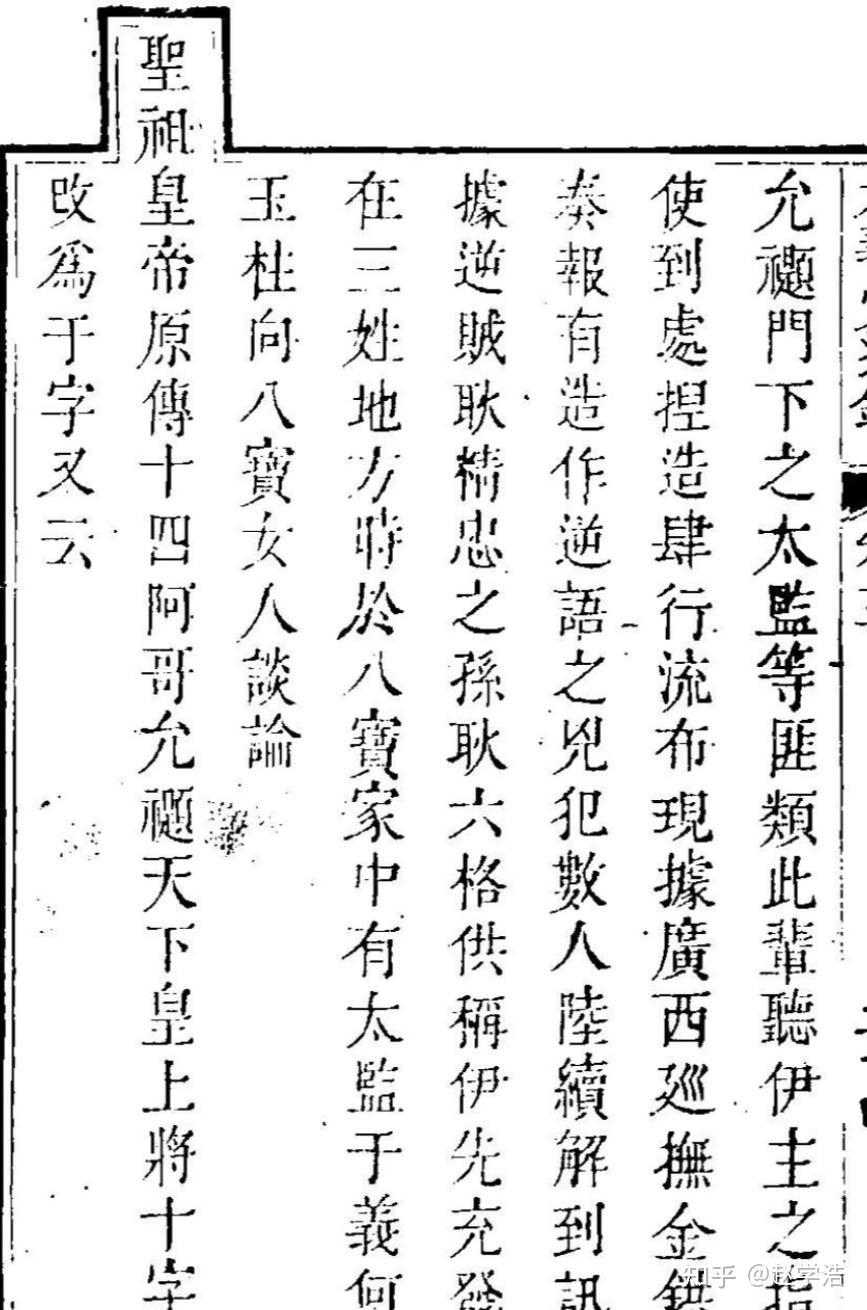 允禵門下之太監等匪類此輩聽伊主之指
使到處捏造肆行流布現據廣西廵撫金
奏報有造作逆語之兇犯數人陸續解到訊
據逆賊耿精忠之孫耿六格供稱伊先充發
在三姓地方時於八寶家中有太監于義何
玉柱向八寶女人談論
聖祖皇帝原傳十四阿哥允禵天下皇上將十字
改爲于字又云
知乎 @赵学浩